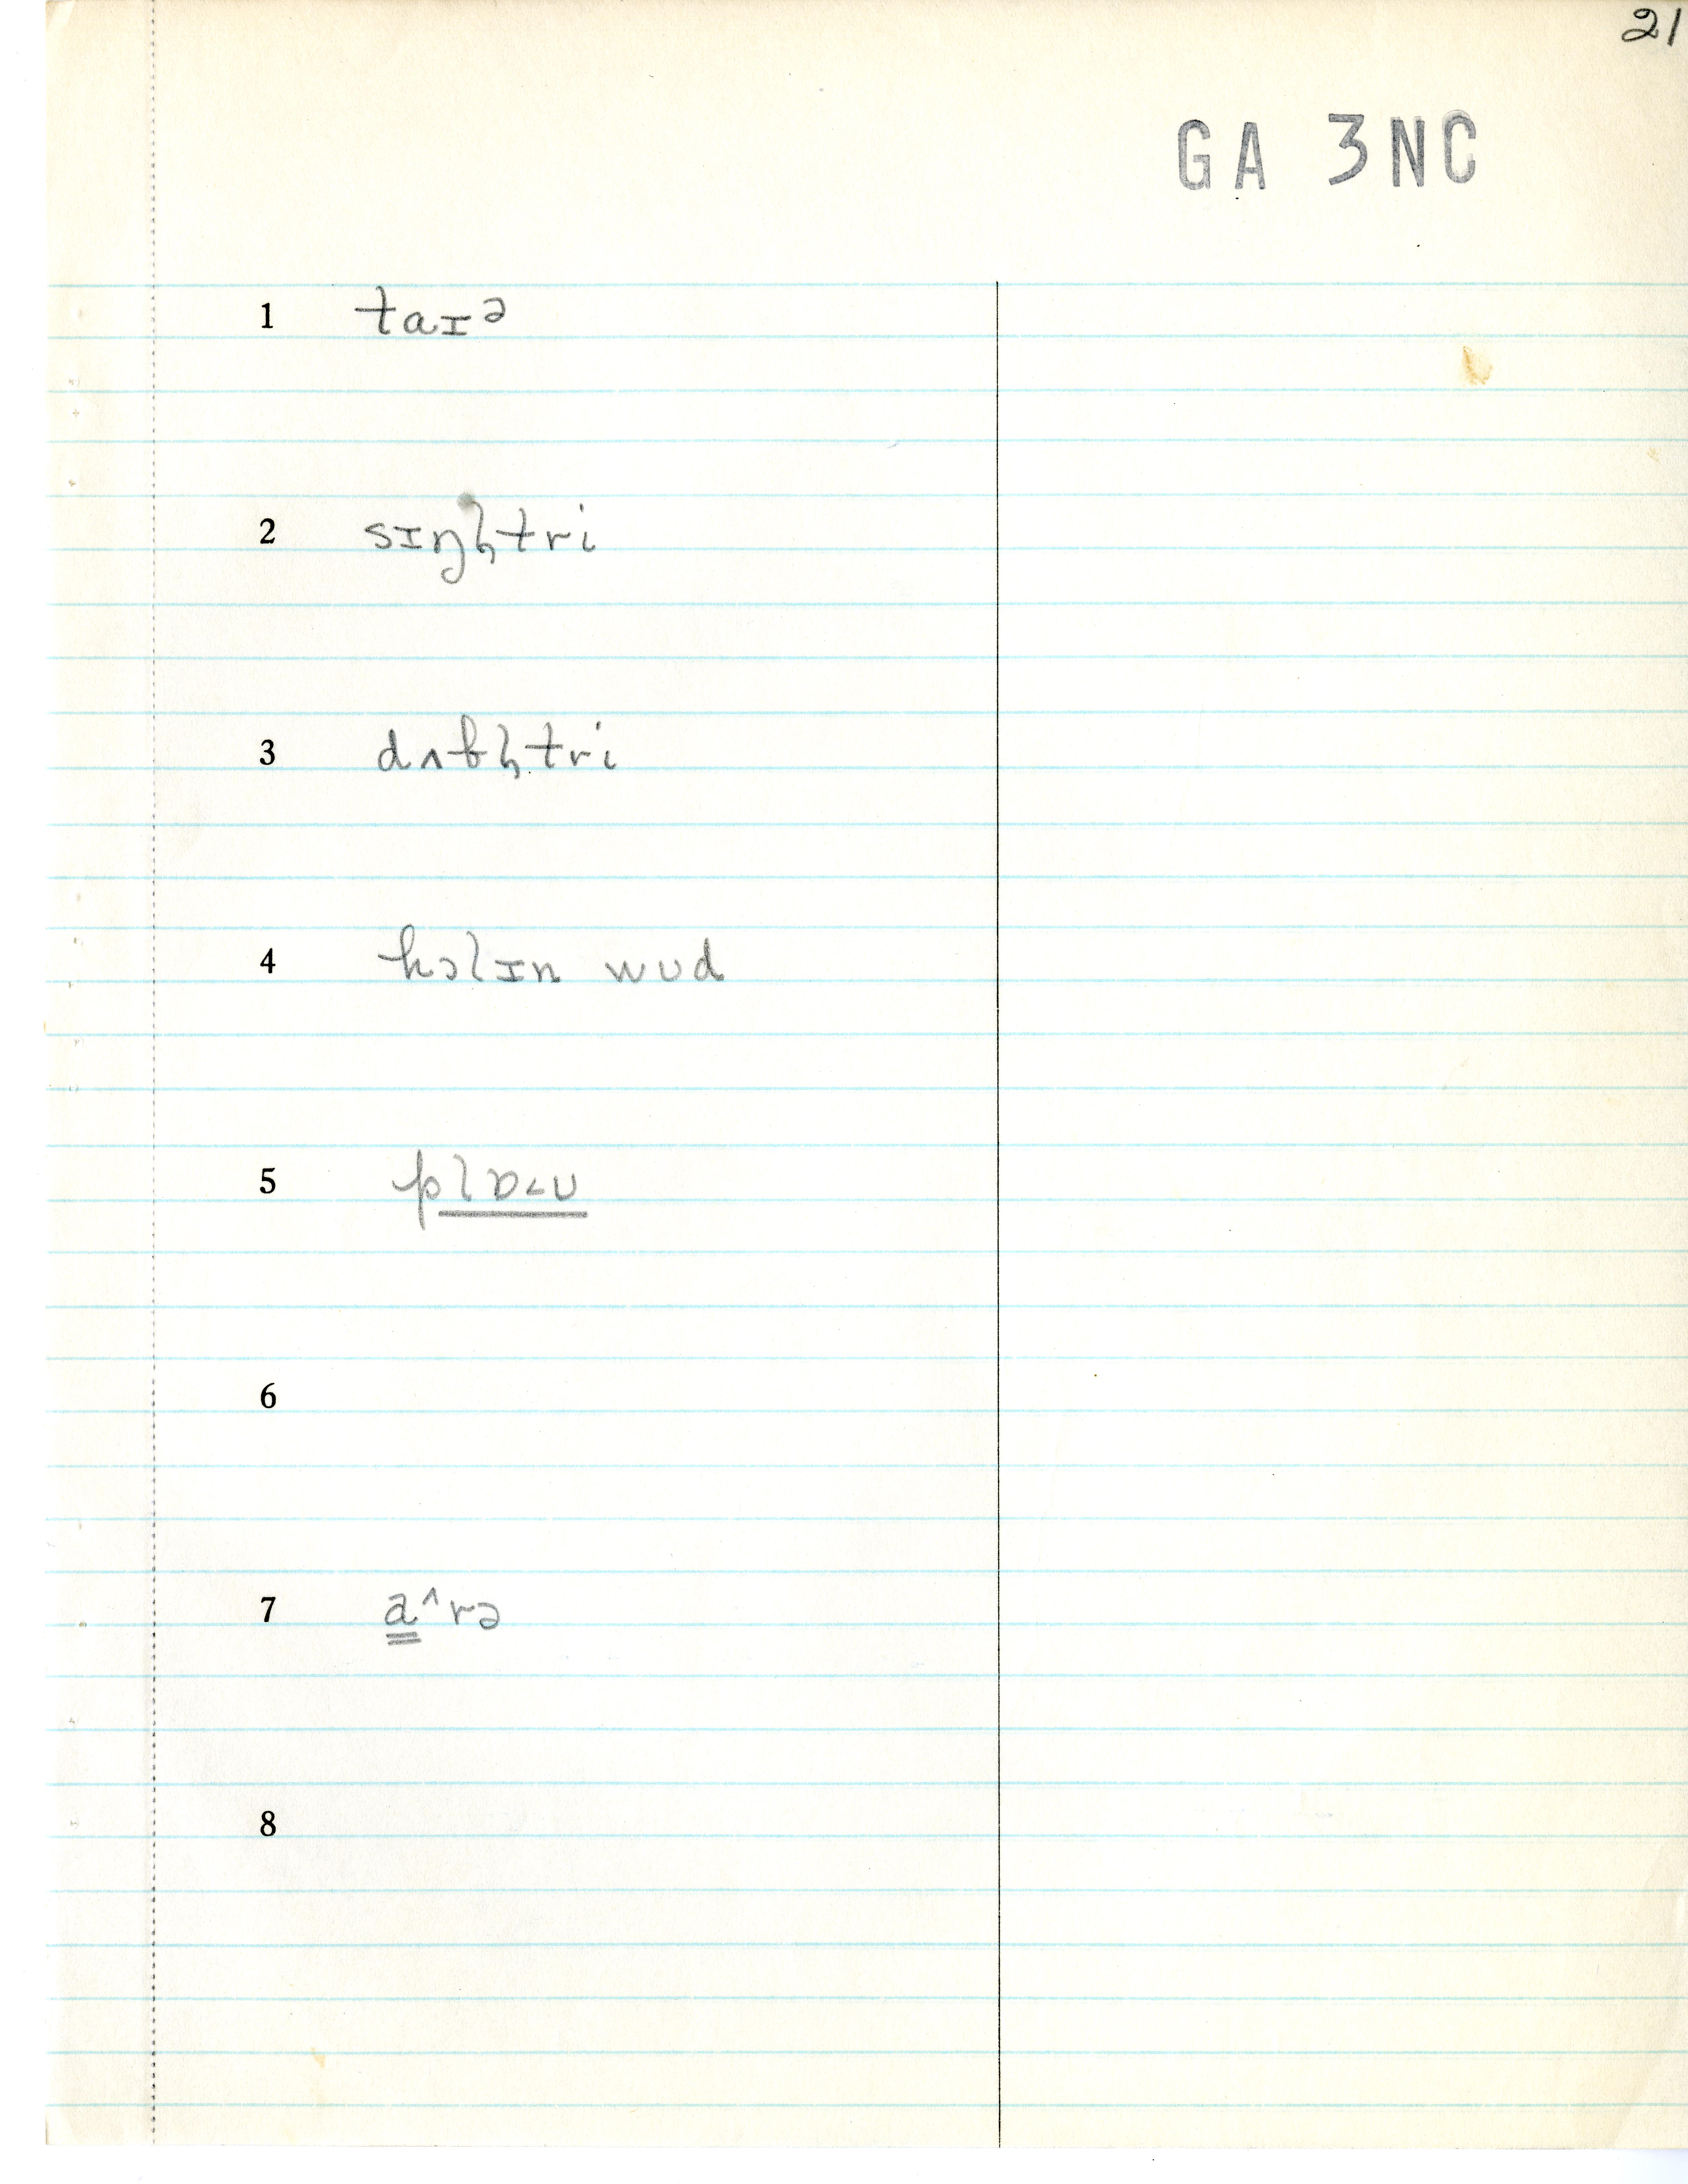 21
GA 3NC
1 taɪᵊ
2 sɪŋl̩tri
3 dʌbl̩tri
4 hɔlɪn wud
5 plɒ˂ʊ
6
7 a˄rə
8